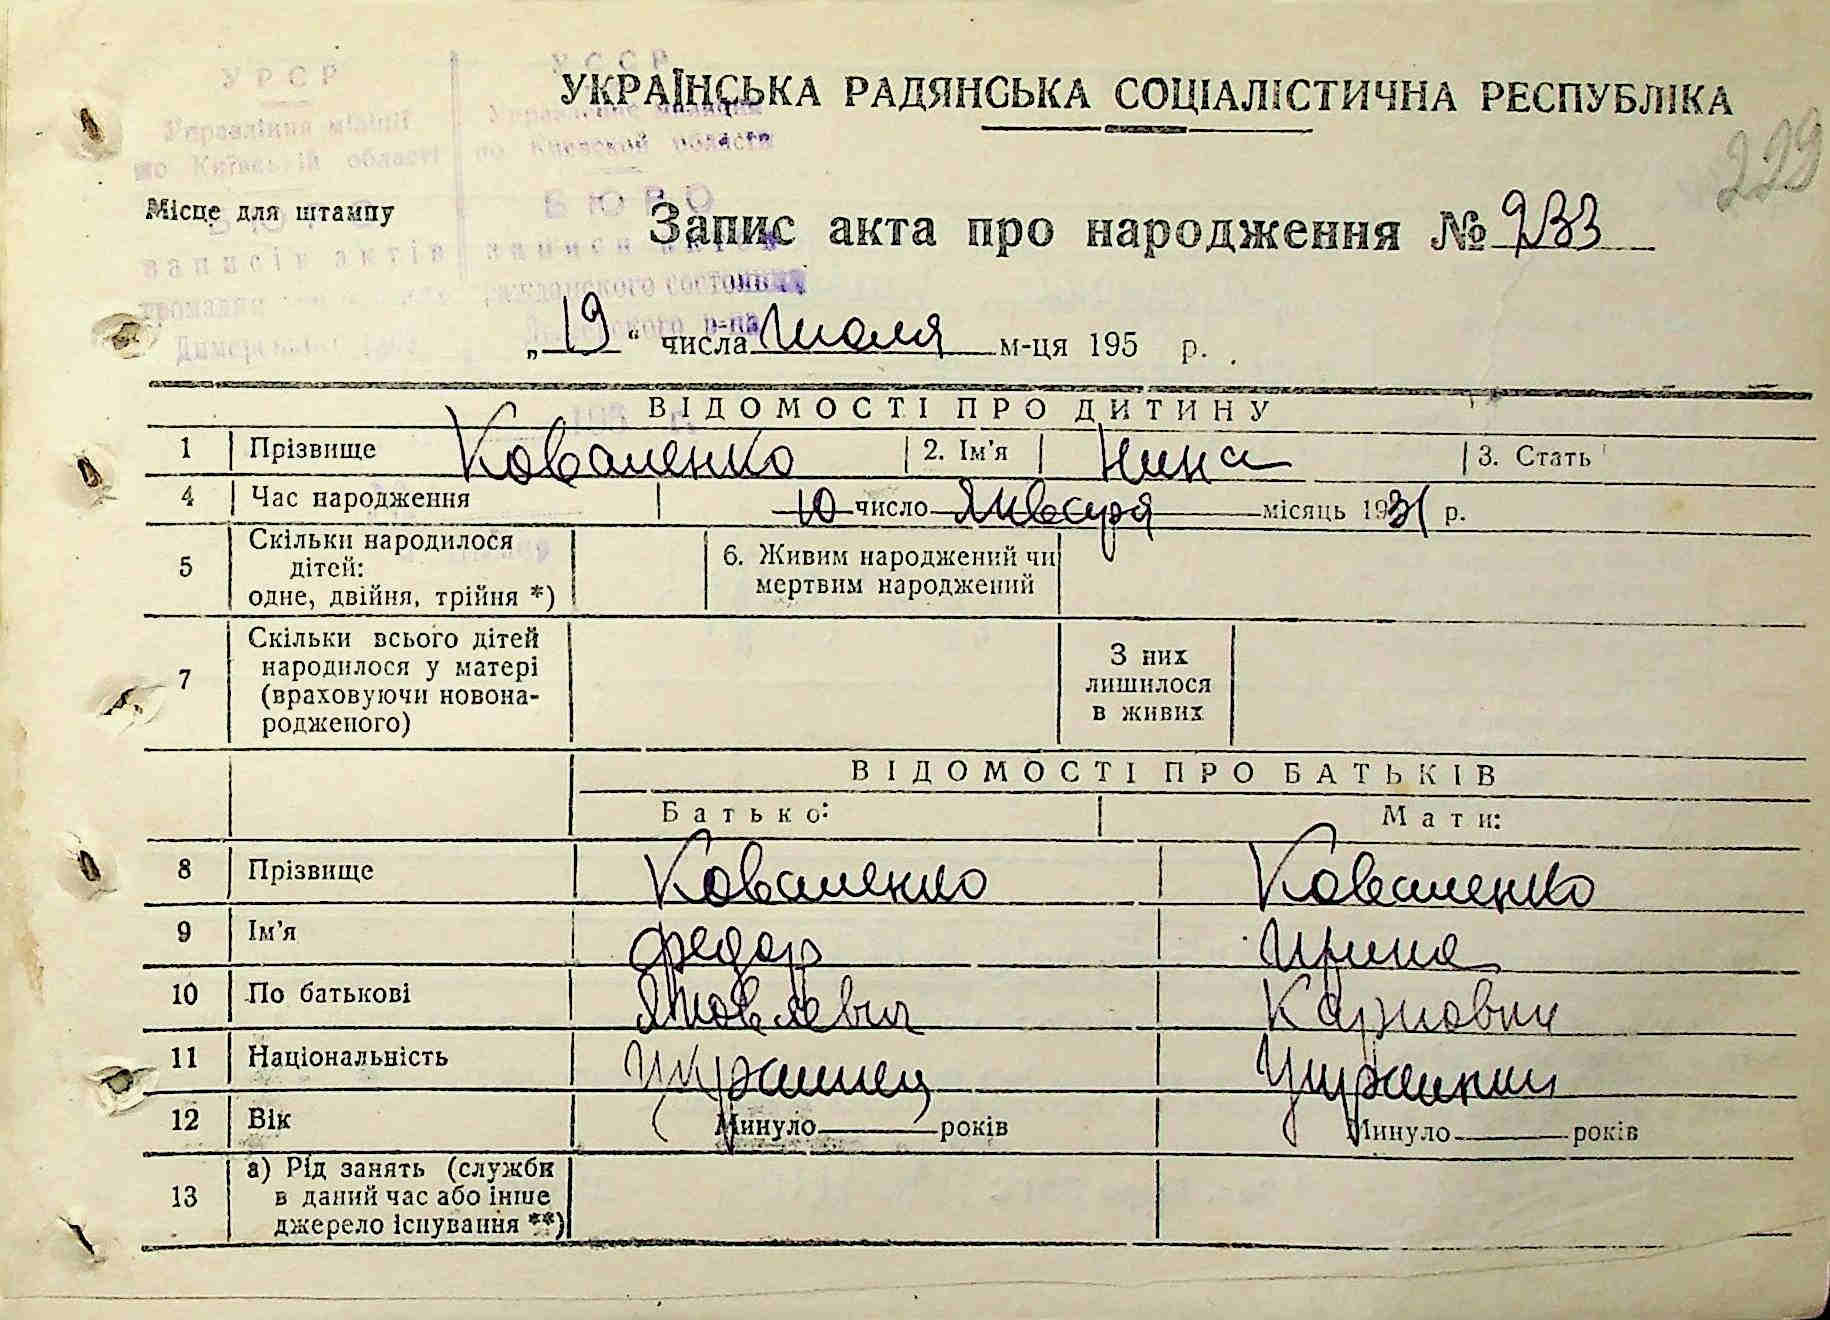 УРСР
УССР
УКРАЇНСЬКА РАДЯНСЬКА СОЦІАЛІСТИЧНА РЕСПУБЛІКА
Управління міліції
Управление милиции
по Київській області
по Киевской области
229
БЮРО
БЮРО
Місце для штампу
Запис акта про народження № 233
записів актів
записи актов
гражданского состояния
„19“ числа Июля м-ця 195 р.
ВІДОМОСТІ ПРО ДИТИНУ
1 Прізвище Коваленко 2. Ім'я Нина 3. Стать
4 Час народження 10 число Января місяць 1931 р.
5 Скільки народилося дітей: одне, двійня, трійня *) 6. Живим народжений чи мертвим народжений
7 Скільки всього дітей народилося у матері (враховуючи новона-родженого) З них лишилося в живих
ВІДОМОСТІ ПРО БАТЬКІВ
Батько: Мати:
8 Прізвище Коваленко Коваленко
9 Ім'я Федор Ирина
10 По батькові Яковлевич Карповна
11 Національність Украинец Украинка
12 Вік Минуло років Минуло років
13 а) Рід занять (служби в даний час або інше джерело існування **)